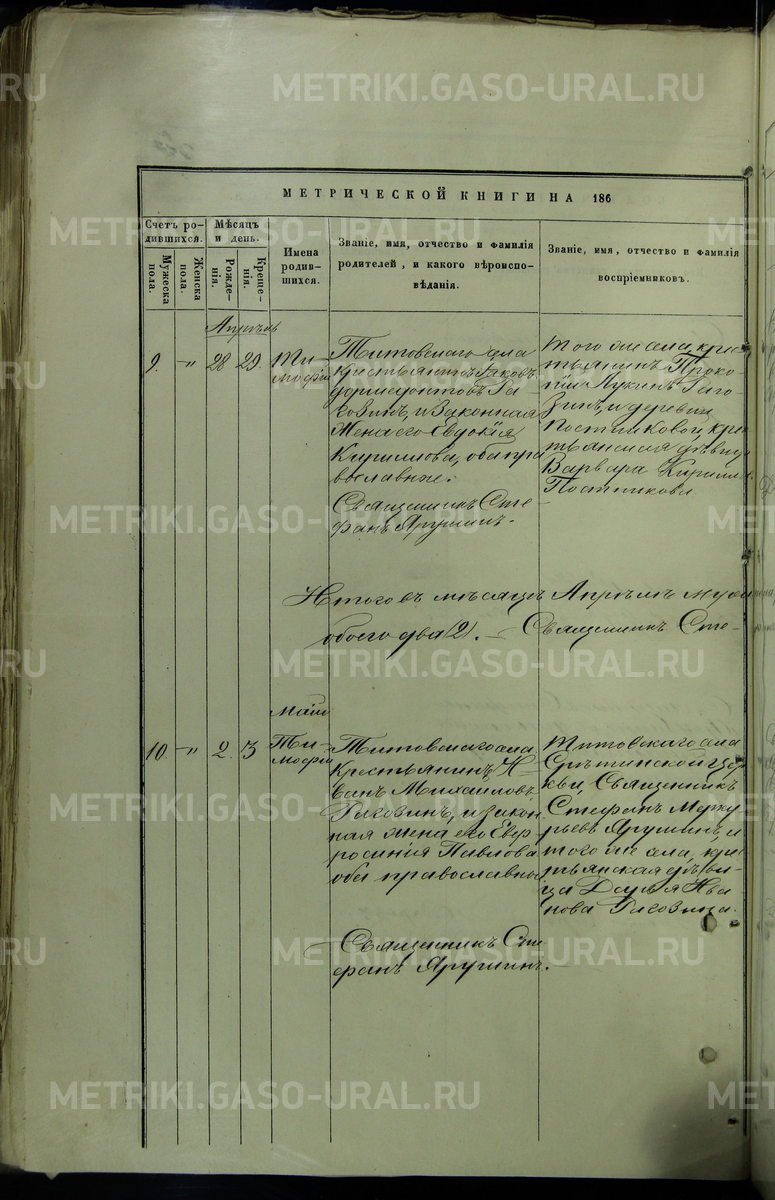 МЕТРИЧЕСКОЙ КНИГИ НА 186
Счетъ ро-
дившихся.
Мѣсяцъ
и день.
Мужеска
пола.
Женска
пола.
Рожде-
нія.
Креще-
нія.
Имена
родив-
шихся.
Званіе, имя, отчество и фамилія
родителей, и какого вѣроиспо-
вѣданія.
Званіе, имя, отчество и фамилія
воспріемниковъ.
Апрѣль
9. " 28 29.
Ти-
мофей
Титовскаго села
крестьянинъ Іаковъ
Дормедонтовъ Ра-
говинъ, и законная
жена его Евдокія
Кирилова, оба пра
вославные.
Священникъ Сте
фанъ Ярушинъ.
того же села, крес
тьянинъ Проко-
пій Лукинъ
и деревни
Постниковой, крес
тьянская дѣвица
Варвара Кирилл.
Постникова
Итого въ мѣсяцѣ Апрѣлѣ муж
обоего два (2). Священникъ Сте-
Маій
10. " 2. 3
Ти-
мофей
Титовскаго села
Крестьянинъ И-
ванъ Михайловъ
Роговинъ, и закон
ная жена его Евф
росинія Павлова
оба православные
Священникъ Сте
фанъ Ярушинъ.
Титовскаго села
Срѣтинской цер
кви, Священникъ
Стефанъ Мерку
рьевъ Ярушинъ, и
того же села, крес
тьянская дѣви-
ца Дарья Ива
нова Роговина.
METRIKI.GASO-URAL.RU